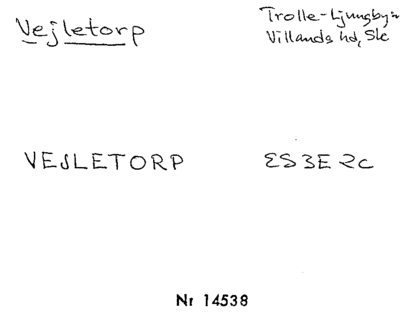 Vejletorp
Trolle-Ljungby sn
Villands hd, Sk
VEJLETORP
ES 3E 2c
Nr 14538